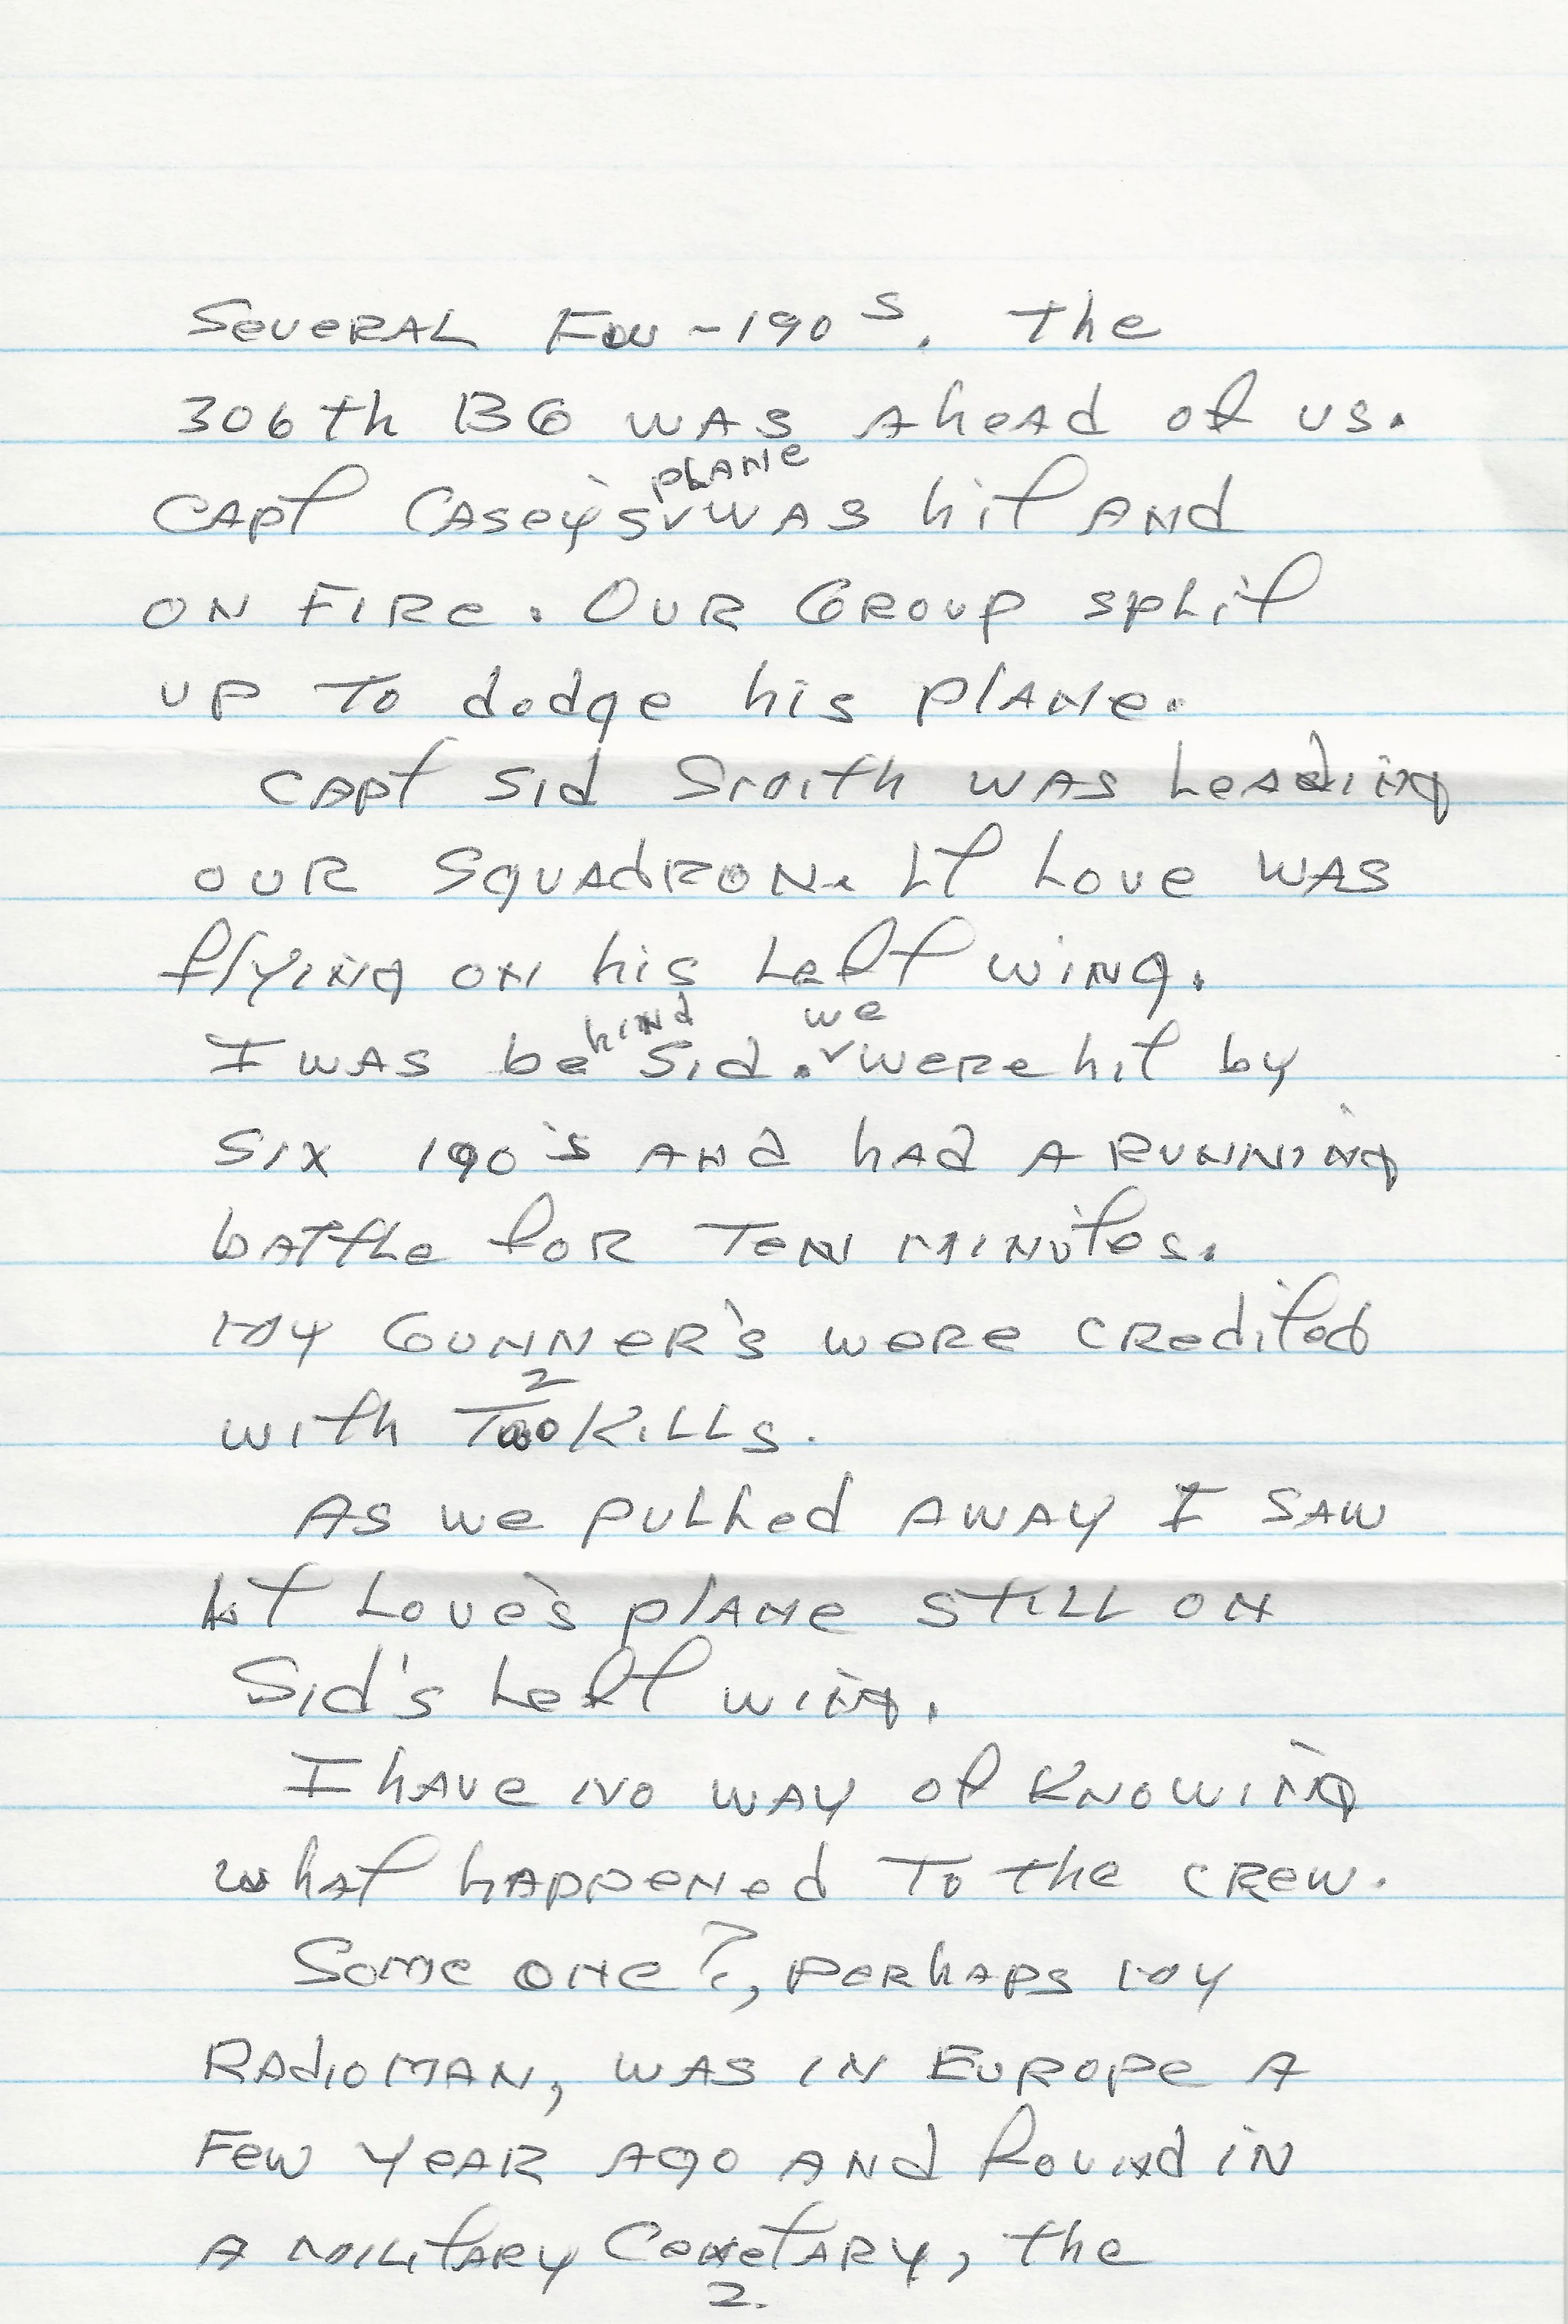 Several FW-190s. The
306th BG was ahead of us.
plane
Capt Casey's ✓ was hit and
on fire. Our Group split
up to dodge his plane.
Capt Sid Smith was leading
our squadron. Lt Love was
flying on his left wing.
hind we
I was be Sid. ✓ were hit by
six 190's and had a running
battle for ten minutes.
My Gunner's were credited
2
with Two Kills.
As we pulled away I saw
Lt Love's plane still on
Sid's left wing.
I have no way of knowing
what happened to the crew.
Some one?, perhaps my
Radioman, was in Europe a
few year ago and found in
a military Cemetary, the
2.